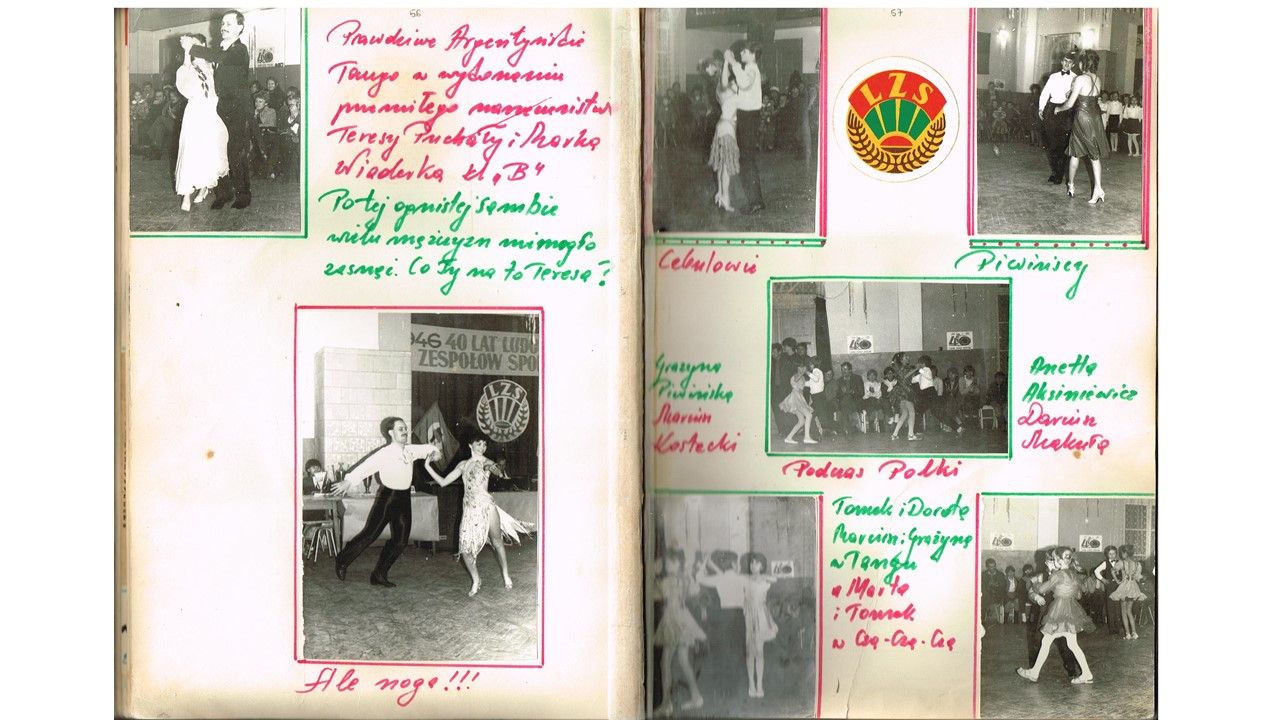 56
Prawdziwe Argentyńskie
Tango w wykonaniu
przemiłego narzeczeństwa
Teresy Puchały i Marka
Wiaderka kl „B"
Po tej ognistej sambie
wielu mężczyzn nie mogło
zasnąć. Co Ty na to Teresa?
946 40 LAT LUDO
ZESPOŁÓW SPO
LZS
Ale noga!!!
57
LZS
Cebulowie
Piwińscy
40
40
Grażyna
Piwińska
Marcin
Kostecki
Anetta
Aksiniewicz
Darcin
Makuła
Podczas Polki
Tomek i Dorota
Marcin i Grażyna
w Tangu
a Marta
i Tomek
w Czą-Czą-Czą
40
40
40